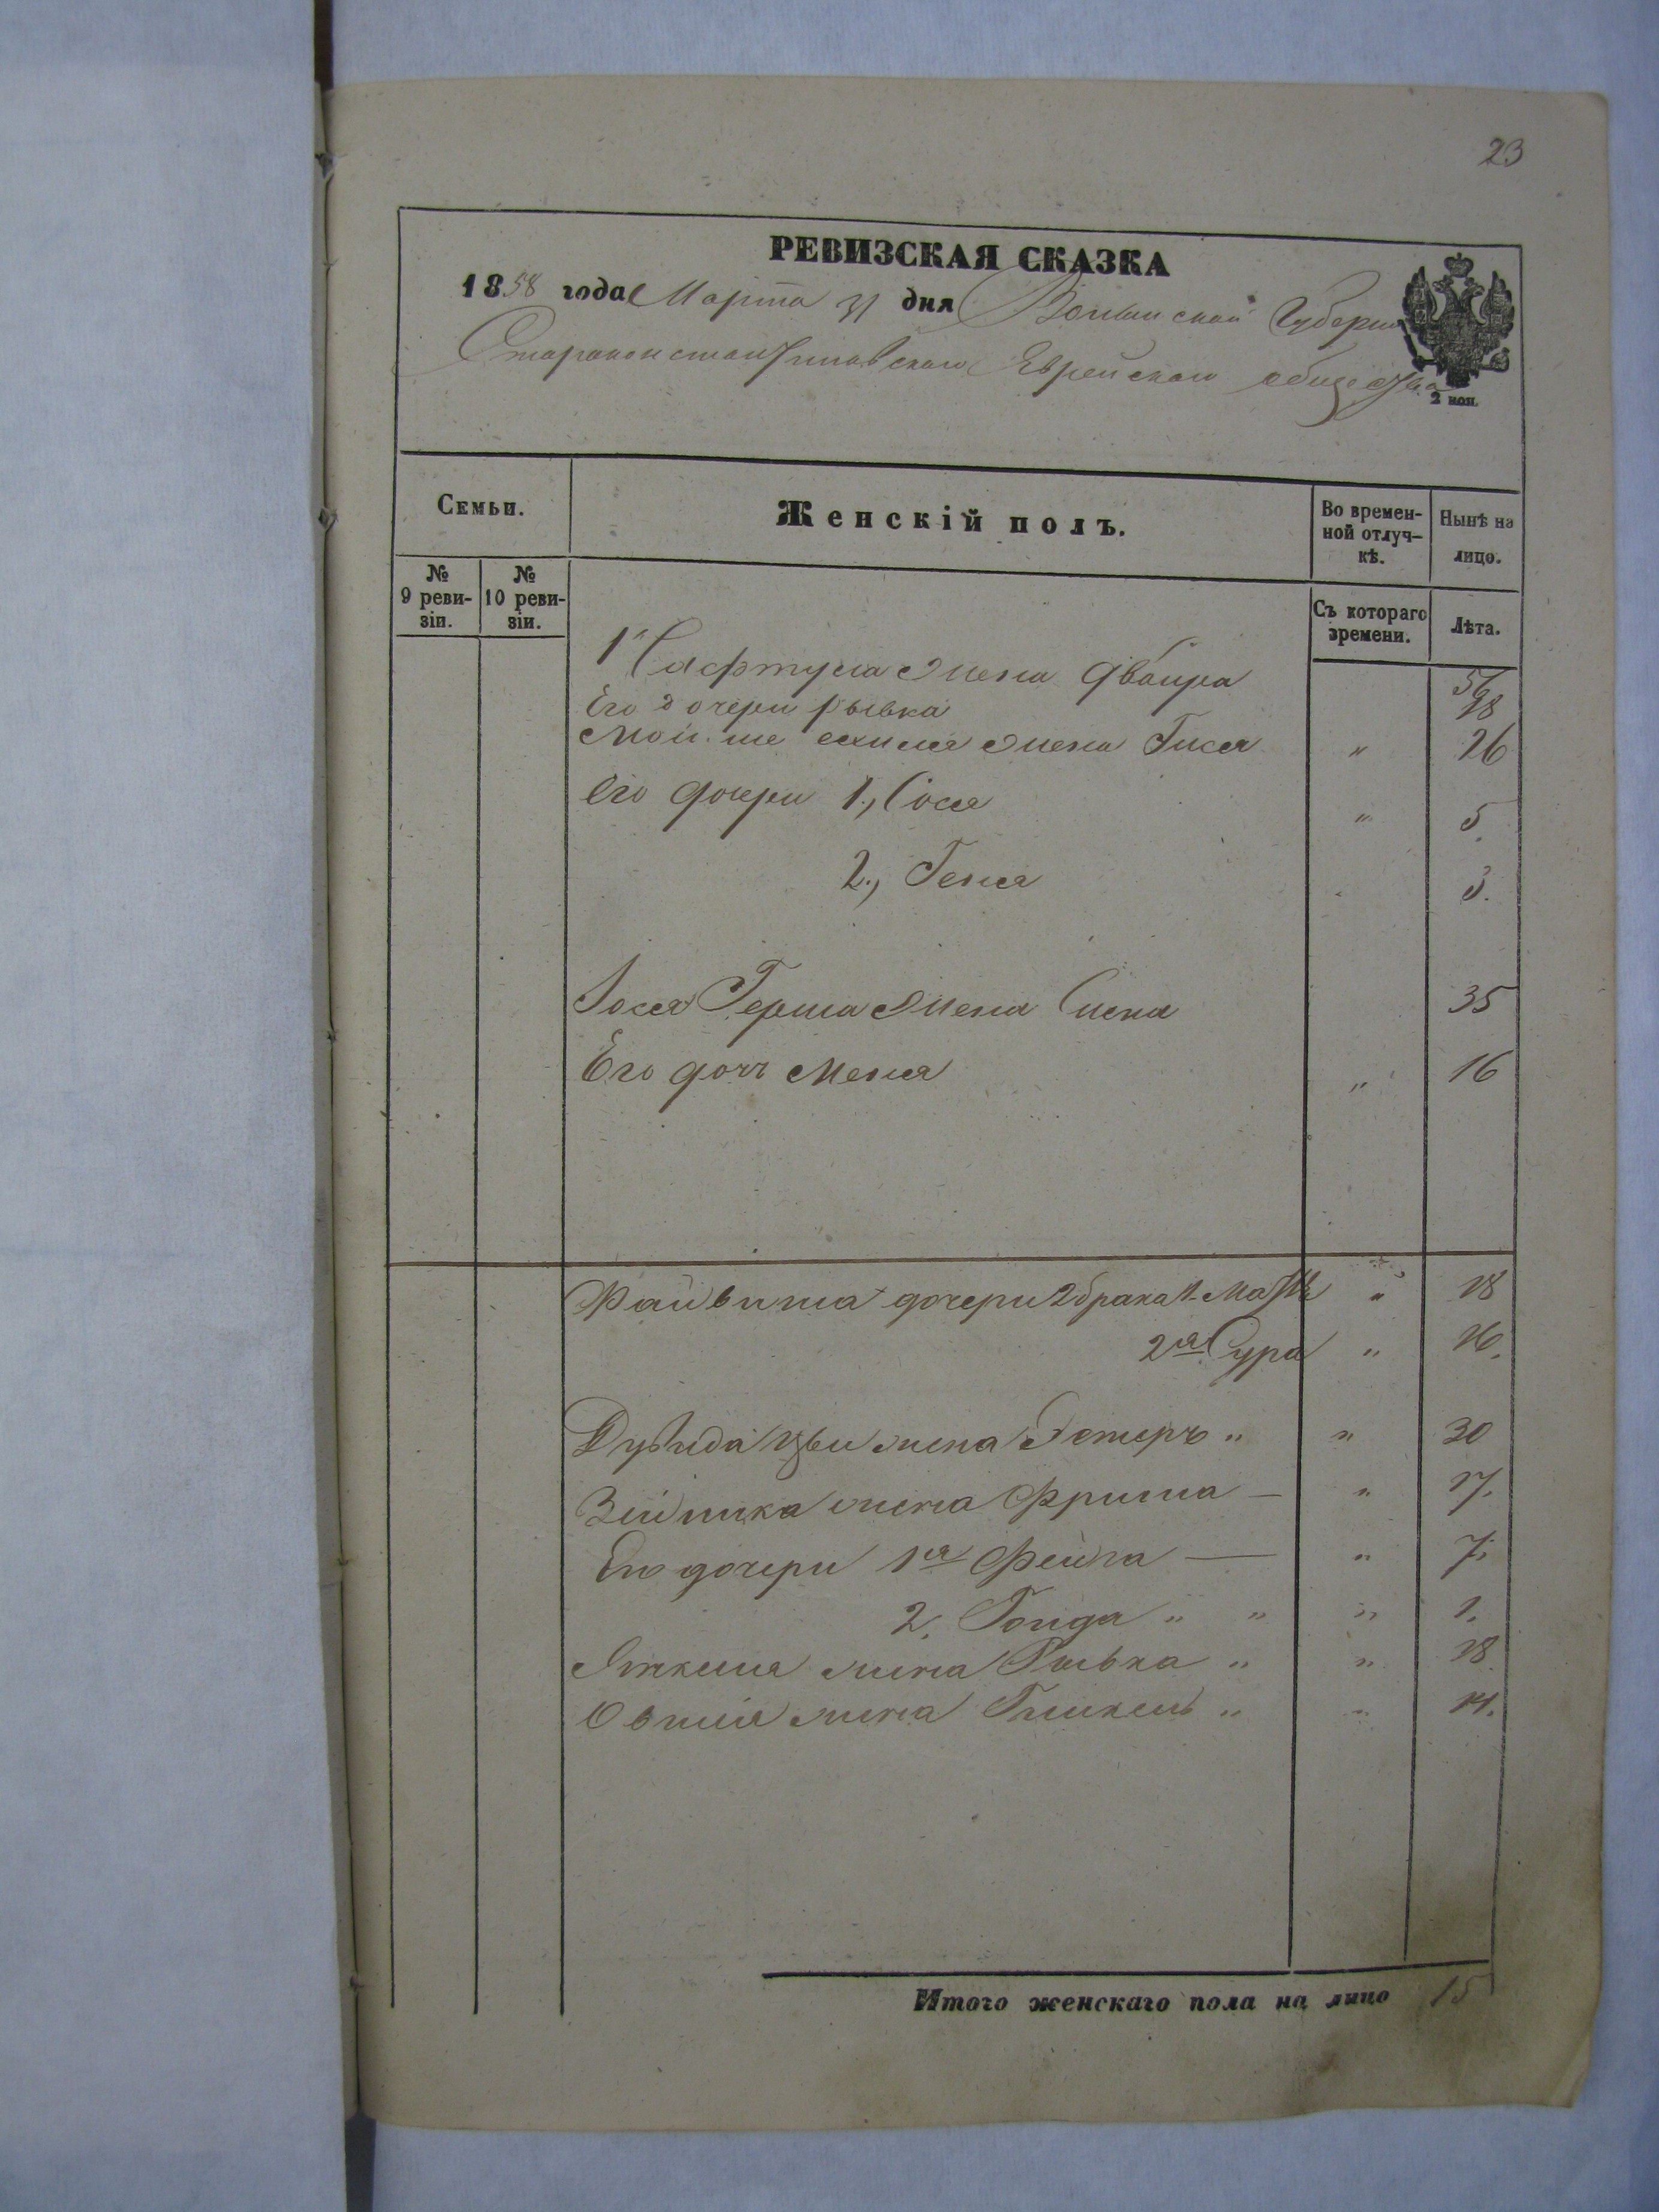 23
РЕВИЗСКАЯ СКАЗКА
1858 года Марта 31 дня Волынской Губернии
Староконстантиновскаго Еврейскаго общества
2 коп.
Семьи.
Женскій полъ.
Во времен-
ной отлуч-
кѣ.
Нынѣ на
лицо.
№
9 реви-
зіи.
№
10 реви-
зіи.
Съ котораго
времени.
Лѣта.
Нафтула жена Двойра 56
Его дочери Рывка 18
Мойше жена Гися " 26
Его дочери 1., Сося " 5.
2., Геня 3.
Иося Герша жена 35
Его дочь Меня " 16
Файвиша дочери 2 брака 1. " 18
2я Сура " 16.
жена Эстеръ " " 30
Зейлика жена Фрима — " 27.
Его дочери 1я Фейга — " 7.
2. Голда " " " 1.
жена Рывка " " 18
жена " "
Итого женскаго пола на лицо 15